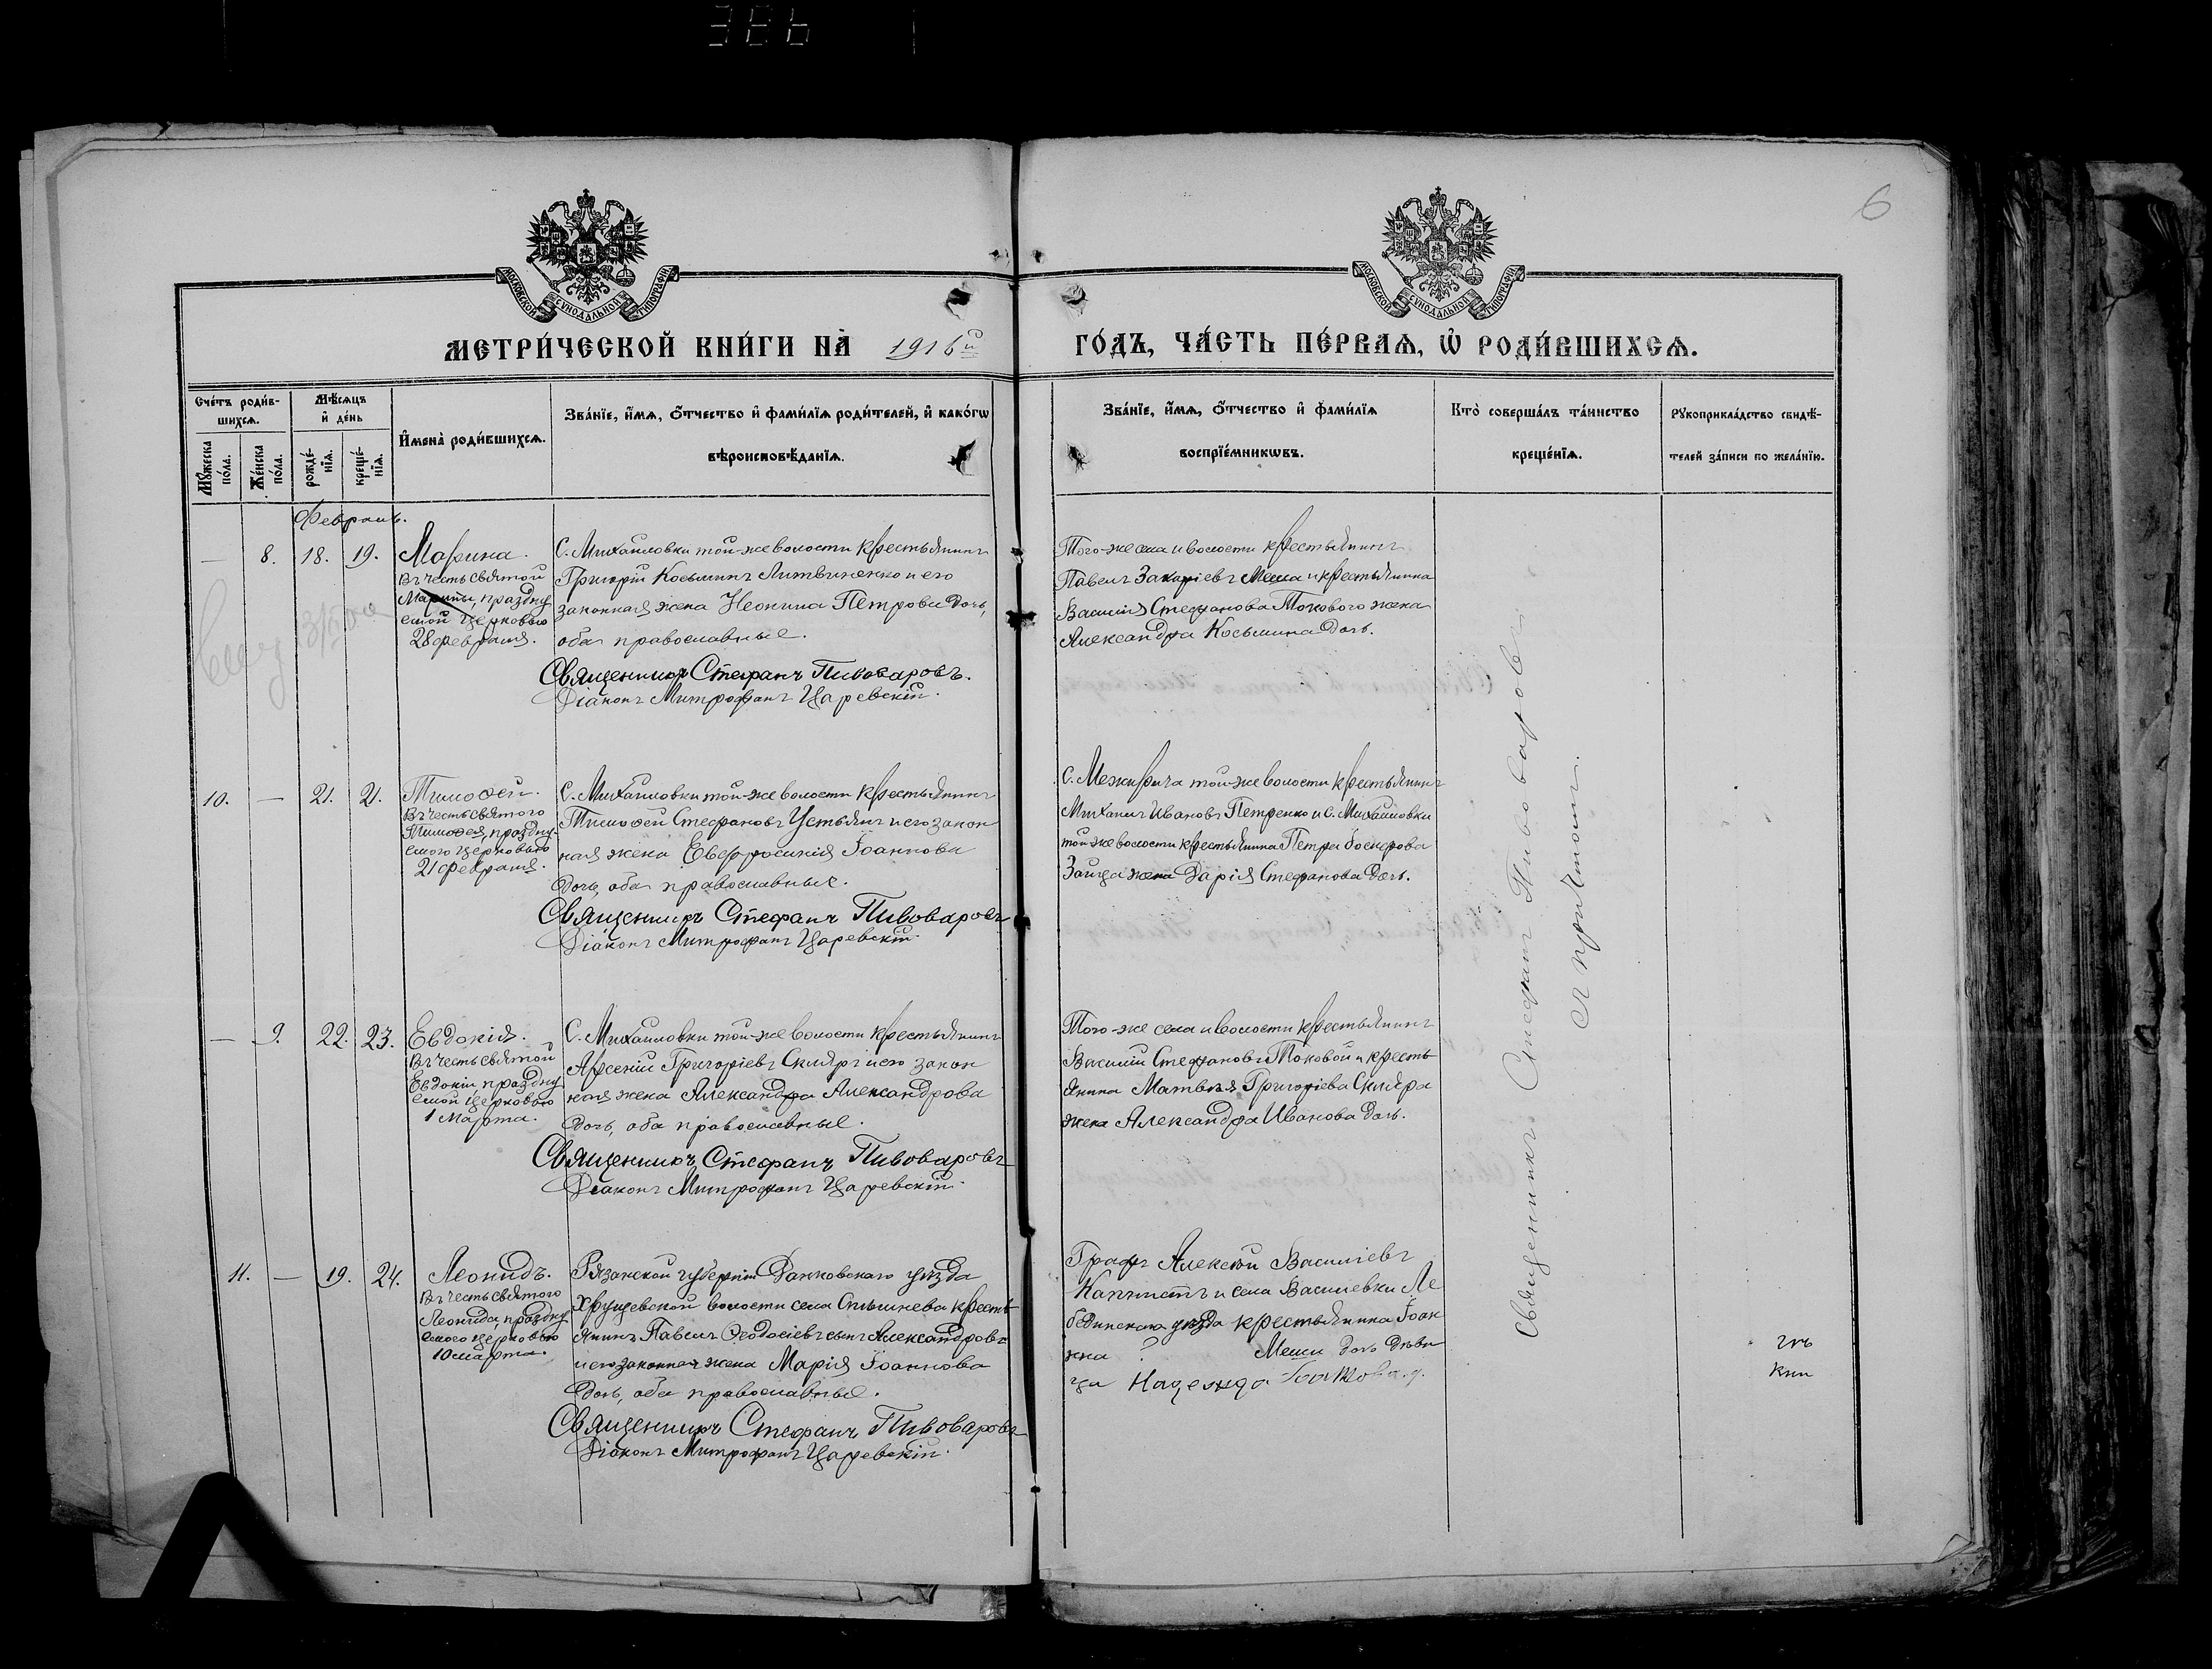 386
6
МОСКОВСКОЙ СѴНОДАЛЬНОЙ ТИПОГРАФІИ
МОСКОВСКОЙ СѴНОДАЛЬНОЙ ТИПОГРАФІИ
МЕТРИ́ЧЕСКОЙ КНИ́ГИ НА̀ 1916й
ГО́ДЪ, ЧА́СТЬ ПЕ́РВАѦ, Ѡ҆ РОДИ́ВШИХСѦ.
Сче́тъ роди́в-
шихсѧ.
Мꙋ́жеска по́ла.
Же́нска по́ла.
Мѣ́сѧцъ
и҆ де́нь
рожде́-
нїѧ.
креще́-
нїѧ.
И҆мена̀ роди́вшихсѧ.
Зва́нїе, и҆́мѧ, ѻ҆́тчество и҆ фами́лїѧ роди́телей, и҆ како́гѡ
вѣроисповѣ́данїѧ.
Зва́нїе, и҆́мѧ, ѻ҆́тчество и҆ фами́лїѧ
воспрїе́мникѡвъ.
Кто̀ соверша́лъ та́инство
креще́нїѧ.
Рꙋкоприкла́дство свидѣ́-
телей за́писи по жела́нїю.
Февраль.
— 8. 18. 19. Марина.
Въ честь святой
Марины, праздну
емой церковью
28 февраля.
С. Михайловки той-же волости крестьянинъ
Григорій Косьминъ Литвиненко и его
законная жена Неонила Петрова дочь,
оба православные.
Священникъ Стефанъ Пивоваровъ.
Діаконъ Митрофанъ Царевскій.
Того-же села и волости крестьянинъ
Павелъ Захаріевъ Меша и крестьянина
Василія Стефанова Токового жена
Александра Косьмина дочь.
10. — 21. 21. Тимоѳей.
Въ честь святого
Тимоѳея, праздну-
емого церковью
21 февраля.
С. Михайловки той-же волости крестьянинъ
Тимоѳей Стефановъ Устьянъ и его закон
ная жена Евфросинія Іоаннова
дочь, оба православные.
Священникъ Стефанъ Пивоваровъ
Діаконъ Митрофанъ Царевскій.
С. Межирича той-же волости крестьянинъ
Михаилъ Ивановъ Петренко и С. Михайловки
той-же волости крестьянина Петра Іосифова
Зайца жена Дарія Стефанова дочь.
— 9. 22. 23. Евдокія.
Въ честь святой
Евдокіи, праздну
емой церковью
1 Марта.
С. Михайловки той-же волости крестьянинъ
Арсеній Григоріевъ Скляръ и его закон
ная жена Александра Александрова
дочь, оба православные.
Священникъ Стефанъ Пивоваровъ
Діаконъ Митрофанъ Царевскій.
Того-же села и волости крестьянинъ
Василій Стефановъ Токовой и кресть
янина Матвѣя Григоріева Скляра
жена Александра Иванова дочь.
11. — 19. 24. Леонидъ.
Въ честь святого
Леонида, праздну
емого церковью
10 марта.
Рязанской губерніи Данковскаго уѣзда
Хрущевской волости села Спѣшнева кресть
янинъ Павелъ Ѳеодосіевъ сынъ Александровъ
и его законная жена Марія Іоаннова
дочь, оба православные.
Священникъ Стефанъ Пивоваровъ
Діаконъ Митрофанъ Царевскій.
Графъ Алексѣй Василіевъ
Капнистъ и села Василевки Ле
бединскаго уѣзда крестьянина Іоан
на ? Меши дочь дѣви
ца Надежда
Священникъ Стефанъ Пивоваровъ
съ причтомъ.